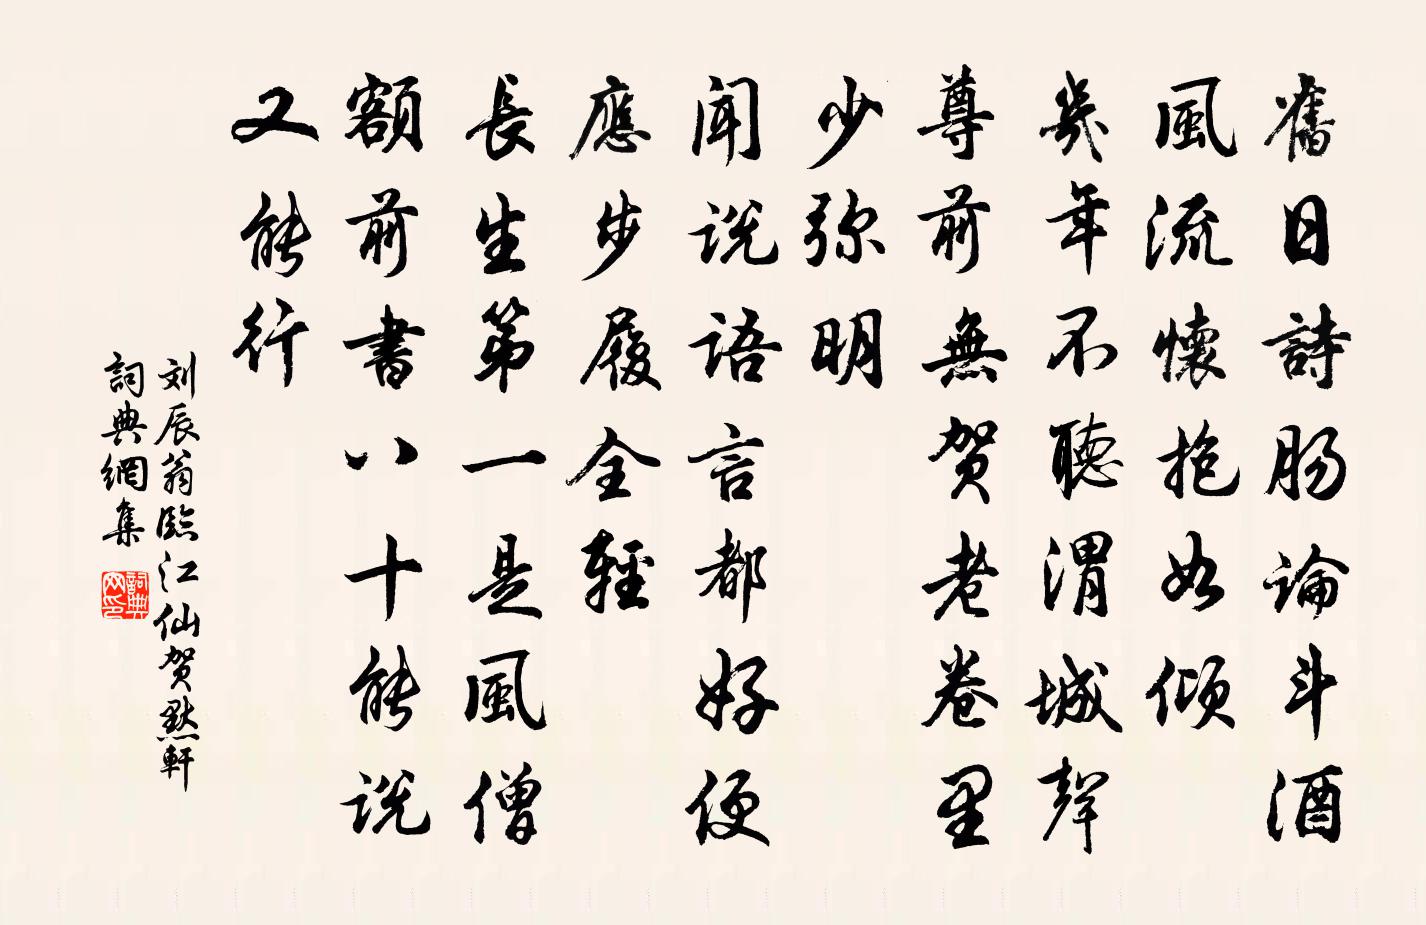 舊日詩肠論斗酒
風流懷抱如傾
幾年不聽渭城聲
尊前無贺老卷里
少弥明
聞説語言都好便
應步履全輕
長生第一是風僧
額前書八十能説
又能行
刘辰翁臨江仙贺默軒
詞典網集
詞典网印